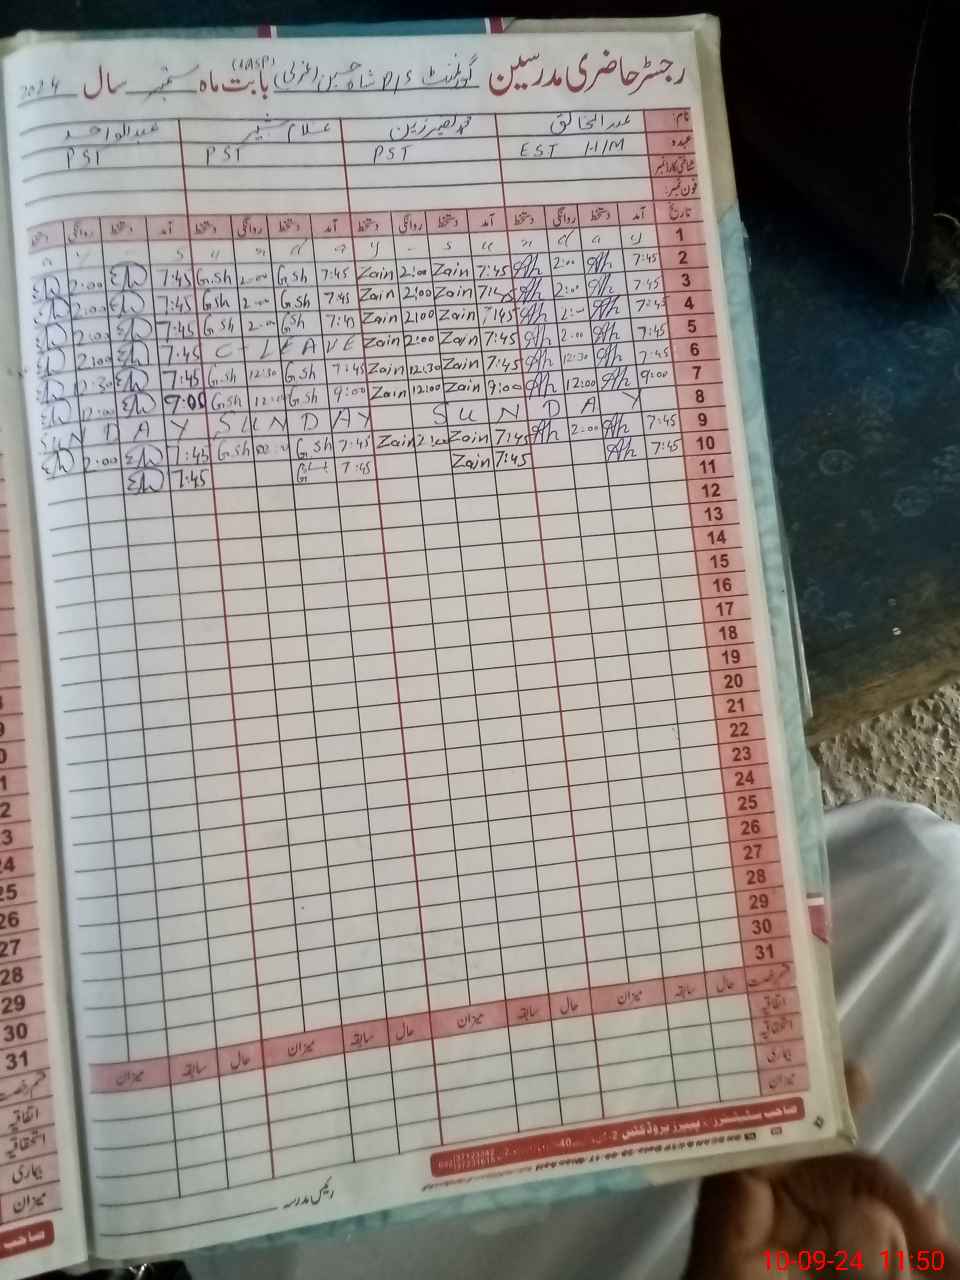 رجسٹر حاضری مدرسین گورنمنٹ P/S شاہ حسین (غربی) بابت ماہ ستمبر سال 2024
نام: عبدالخالق محمد نصیر زین غلام شبیر عبدالواحد
عہدہ EST H/M PST PST PST
شناختی کارڈ نمبر
فون نمبر:
تاریخ آمد دستخط روانگی دستخط آمد دستخط روانگی دستخط آمد دستخط روانگی دستخط آمد دستخط روانگی دستخط
1 S u n d a y S u n d a y
2 7:45 Ah 2:00 Ah 7:45 Zain 2:00 Zain 7:45 G.Sh 2:00 G.Sh 7:45 2:00
3 7:45 Ah 2:00 Ah 7:45 Zain 2:00 Zain 7:45 G.Sh 2:00 G.Sh 7:45 2:00
4 7:45 Ah 2:00 Ah 7:45 Zain 2:00 Zain 7:45 G.Sh 2:00 G.Sh 7:45 2:00
5 7:45 Ah 2:00 Ah 7:45 Zain 2:00 Zain C-LEAVE 7:45 2:00
6 7:45 Ah 12:30 Ah 7:45 Zain 12:30 Zain 7:45 G.Sh 12:30 G.Sh 7:45 12:30
7 9:00 Ah 12:00 Ah 9:00 Zain 12:00 Zain 9:00 G.Sh 12:00 G.Sh 9:00 12:00
8 SUNDAY SUNDAY SUNDAY
9 7:45 Ah 2:00 Ah 7:45 Zain 2:00 Zain 7:45 G.Sh G.Sh 7:45 2:00
10 7:45 Ah 7:45 Zain 7:45 7:45
11
12
13
14
15
16
17
18
19
20
21
22
23
24
25
26
27
28
29
30
31
قسم رخصت حال سابقہ میزان حال سابقہ میزان حال سابقہ میزان حال سابقہ میزان
اتفاقیہ
استحقاقیہ
بیماری
میزان
رئیس مدرسہ
28
29
30
31
قسم رخصت
اتفاقیہ
استحقاقیہ
بیماری
میزان
10-09-24 11:50